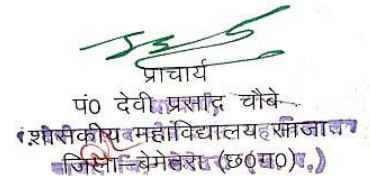 प्राचार्य
पं0 देवी प्रसाद चौबे
शासकीय महाविद्यालय साजा
जिला-बेमेतरा (छ0ग0)